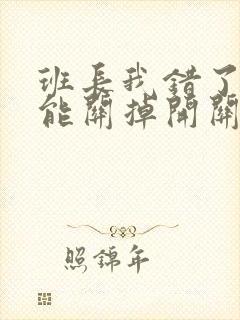 班長我錯了
能關掉開關
照錦年